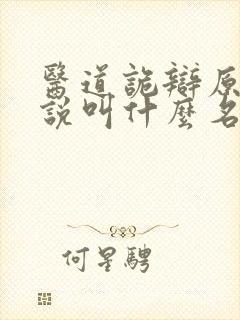 醫道詭辯原
說叫什麼名
何星騁